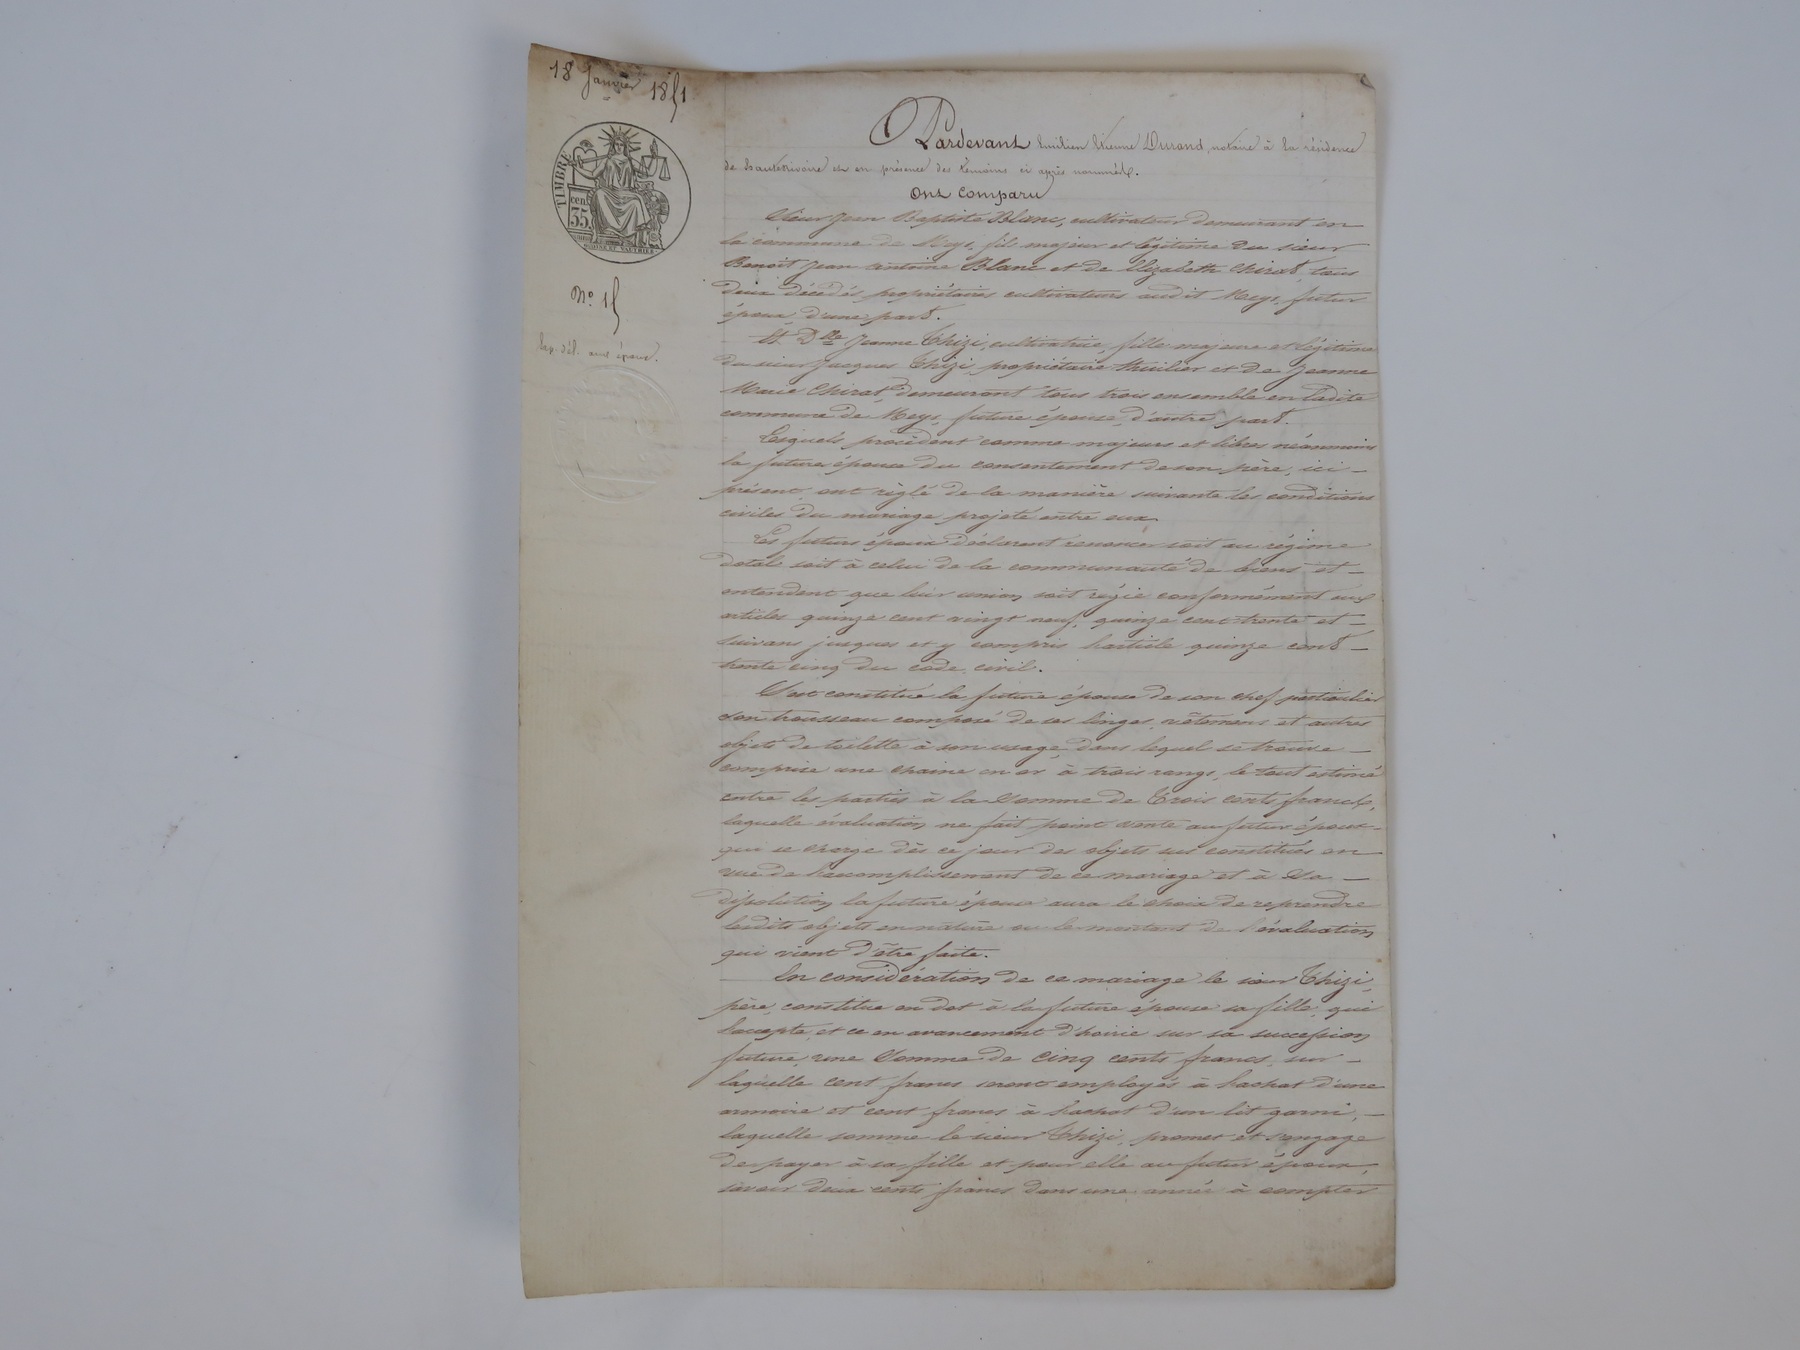 18 Janvier 1851
TIMBRE
cen
35
N.º 15
Exp. dél. aux époux.
Pardevant Emilien Etienne Durand, notaire à la résidence
de hauterivoire et en présence des témoins ci après nommés.
Ont Comparu
Sieur Jean Baptiste Blanc, cultivateur demeurant en
la commune de Meys, fils majeur et légitime du sieur
Benoît Jean Antoine Blanc et de Elizabeth Chirat, tous
deux décédés propriétaires cultivateurs audit Meys, futur
époux d'une part.
Et Dlle Jeanne Thizi, cultivatrice, fille majeure et légitime
du sieur Jacques Thizi, propriétaire thuilier et de Jeanne
Marie Chirat, demeurant tous trois ensemble en ladite
commune de Meys, future épouse, d'autre part.
Lesquels procédent comme majeurs et libres néanmoins
la future épouse du consentement de son père, ici –
présent, ont règlé de la manière suivante les conditions
civiles du mariage projeté entre eux.
Les futurs époux déclarent renoncer soit au régime
dotal soit à celui de la communauté de biens et –
entendent que leur union soit régie conformément aux
articles quinze cent vingt neuf, quinze cent trente et –
suivans jusques et y compris l'article quinze cent –
trente cinq du code civil.
S'est constitué la future épouse de son chef particulier
son trousseau composé de ses linges, vêtemens et autres
objets de toilette à son usage, dans lequel se trouve –
comprise une chaine en or à trois rangs, le tout estimé
entre les parties à la somme de Trois cents francs,
laquelle évaluation ne fait point vente au futur époux –
qui se charge dès ce jour des objets sus constitués en
vue de l'accomplissement de ce mariage et à sa –
dissolution la future épouse aura le choix de reprendre
lesdits objets en nature ou le montant de l'évaluation
qui vient d'être faite.
En considération de ce mariage le sieur Thizi,
père, constitue en dot à la future épouse sa fille, qui
l'accepte, et ce en avancement d'hoirie sur sa succession
future, une somme de cinq cents francs, sur –
laquelle cent francs seront employés à l'achat d'une
armoire et cent francs à l'achat d'un lit garni, –
laquelle somme le sieur Thizi, promet et s'engage
de payer à sa fille et pour elle au futur époux,
savoir deux cents francs dans une année à compter